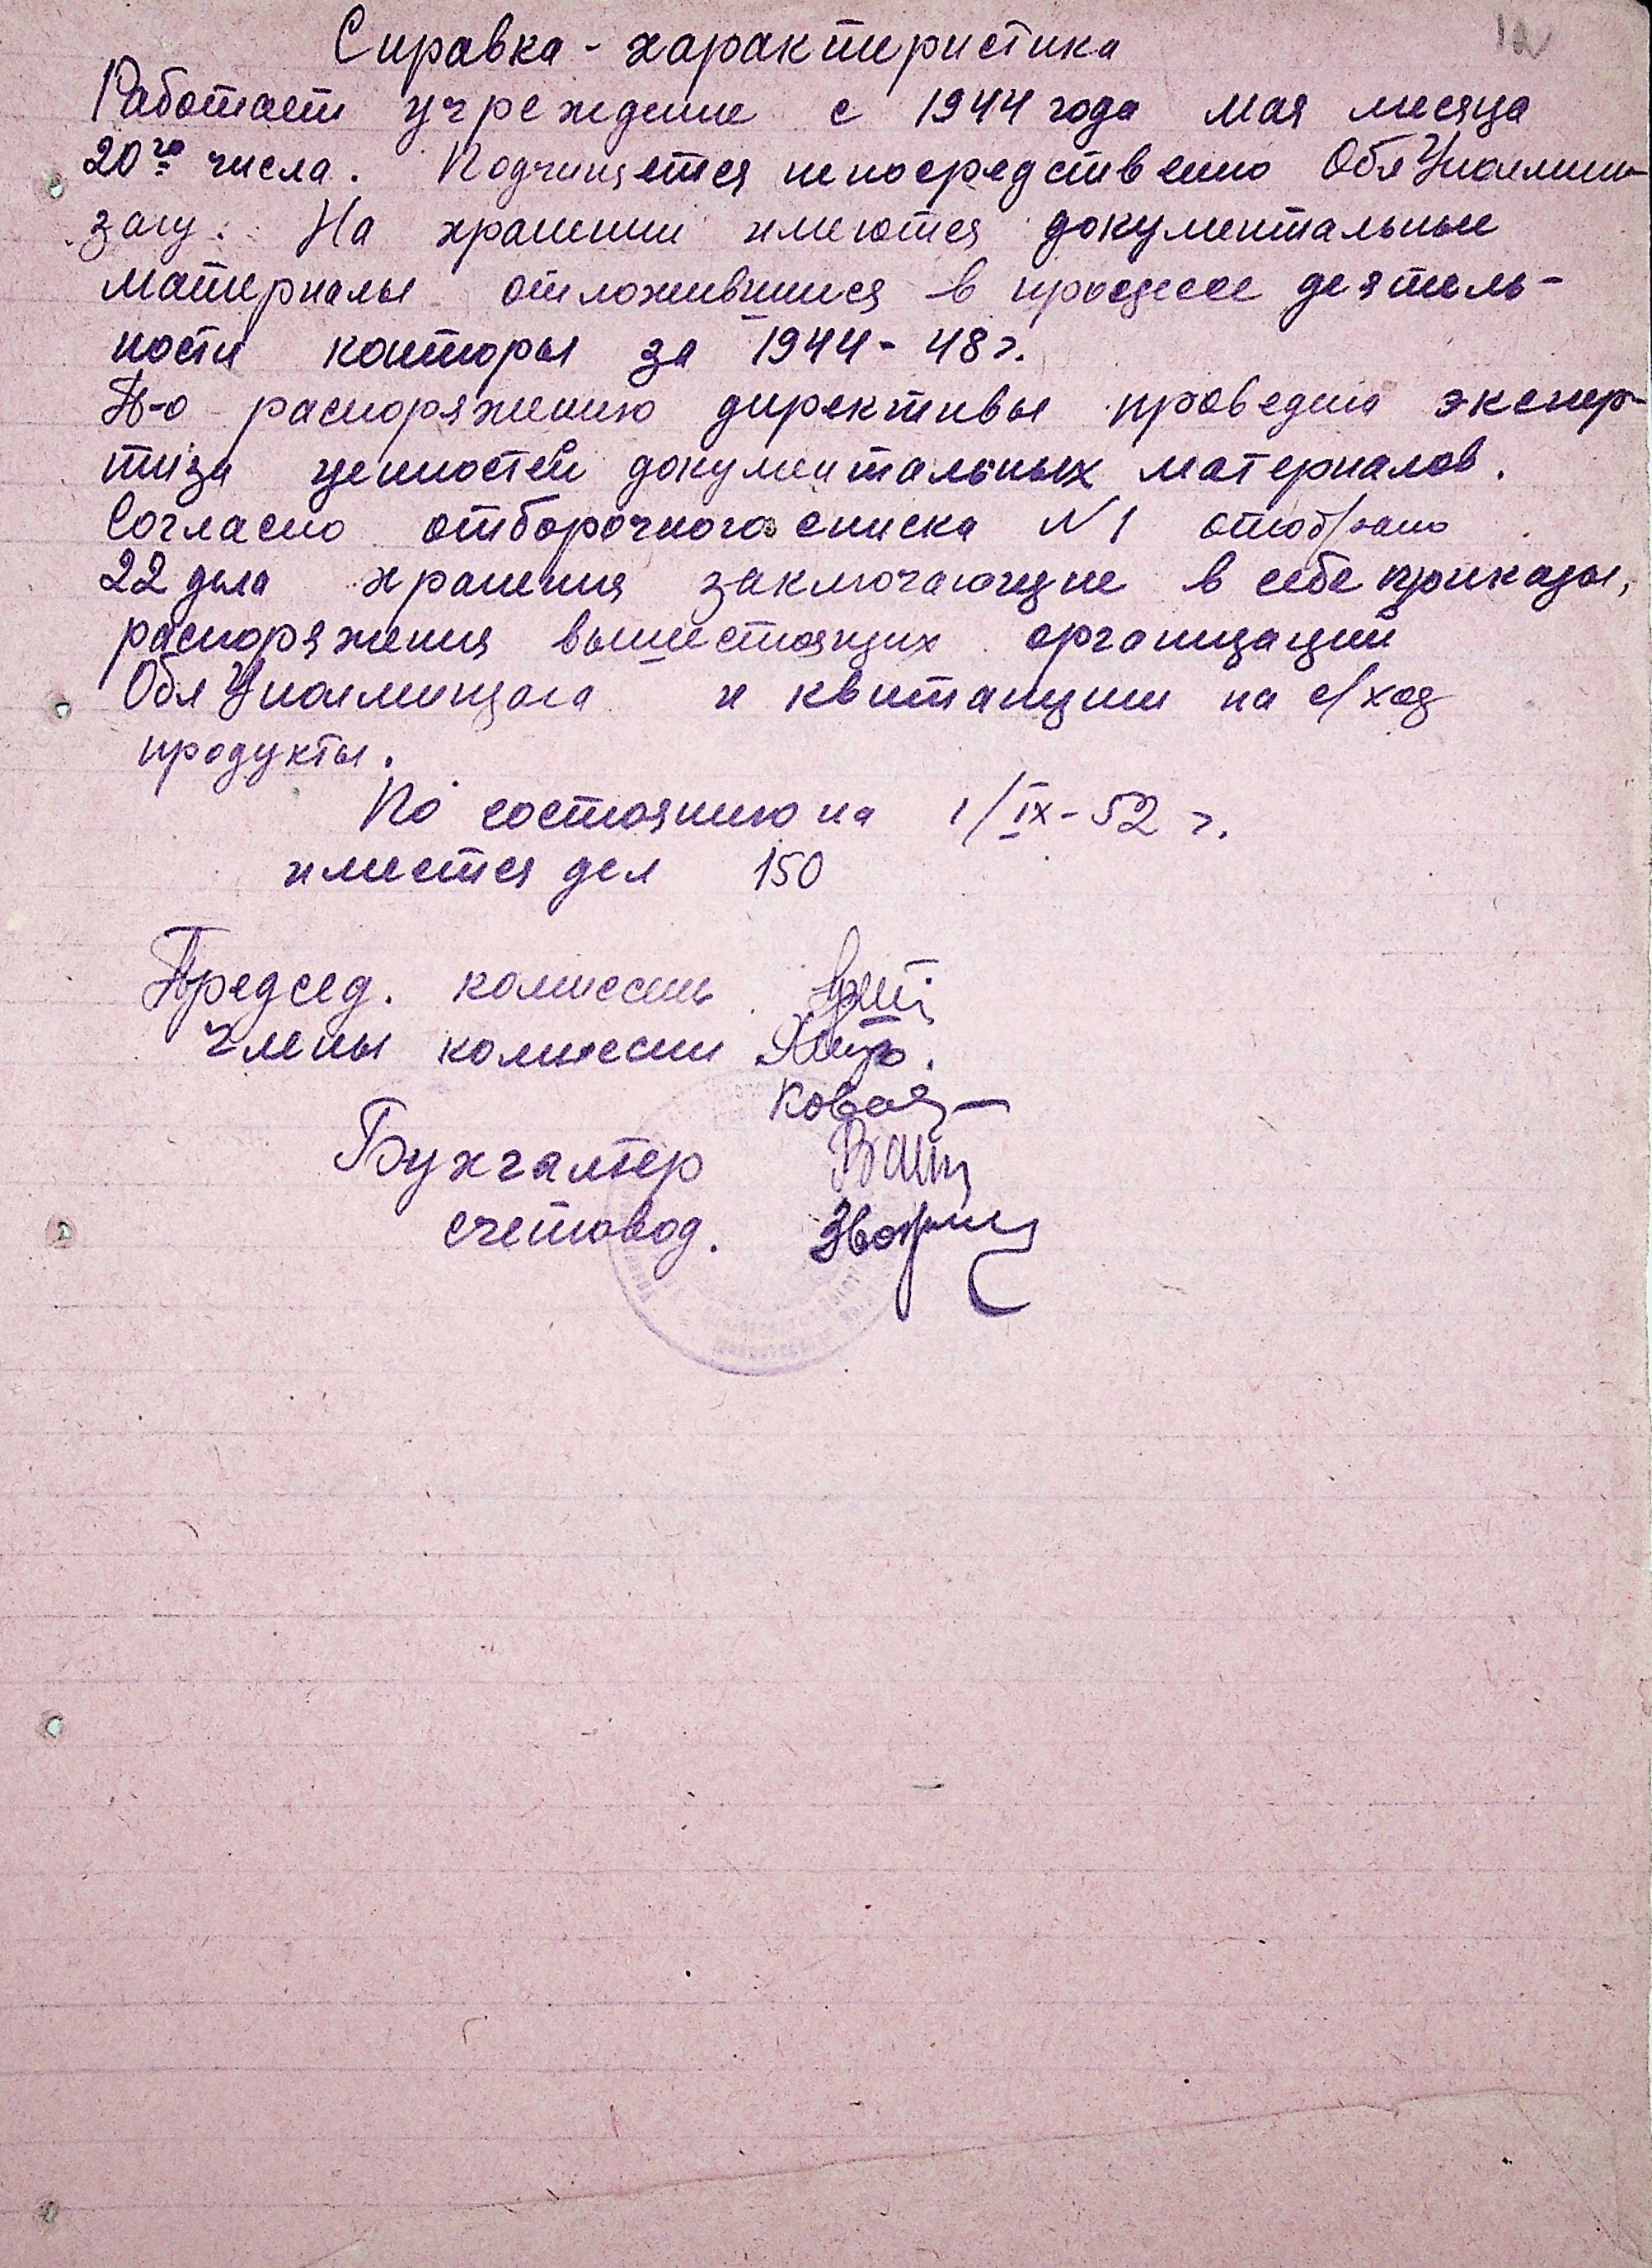 12
Справка - характеристика
Работает учреждение с 1944 года мая месяца
20го числа. Подчиняется непосредственно ОблУполмин-
загу. На хранении имеются документальные
материалы отложившиеся в процессе деятель-
ности конторы за 1944 - 48 г.
П-о распоряжению директивы проведена экспер-
тиза ценностей документальных материалов.
Согласно отборочного списка N 1 отобрано
22 дела хранения заключающие в себе приказы,
распоряжения вышестоящих организаций
ОблУполминзага и квитанции на с/хоз
продукты.
По состоянию на 1/IX - 52 г.
имеется дел 150
Председ. комиссии
Члены комиссии
Бухгалтер
счетовод.